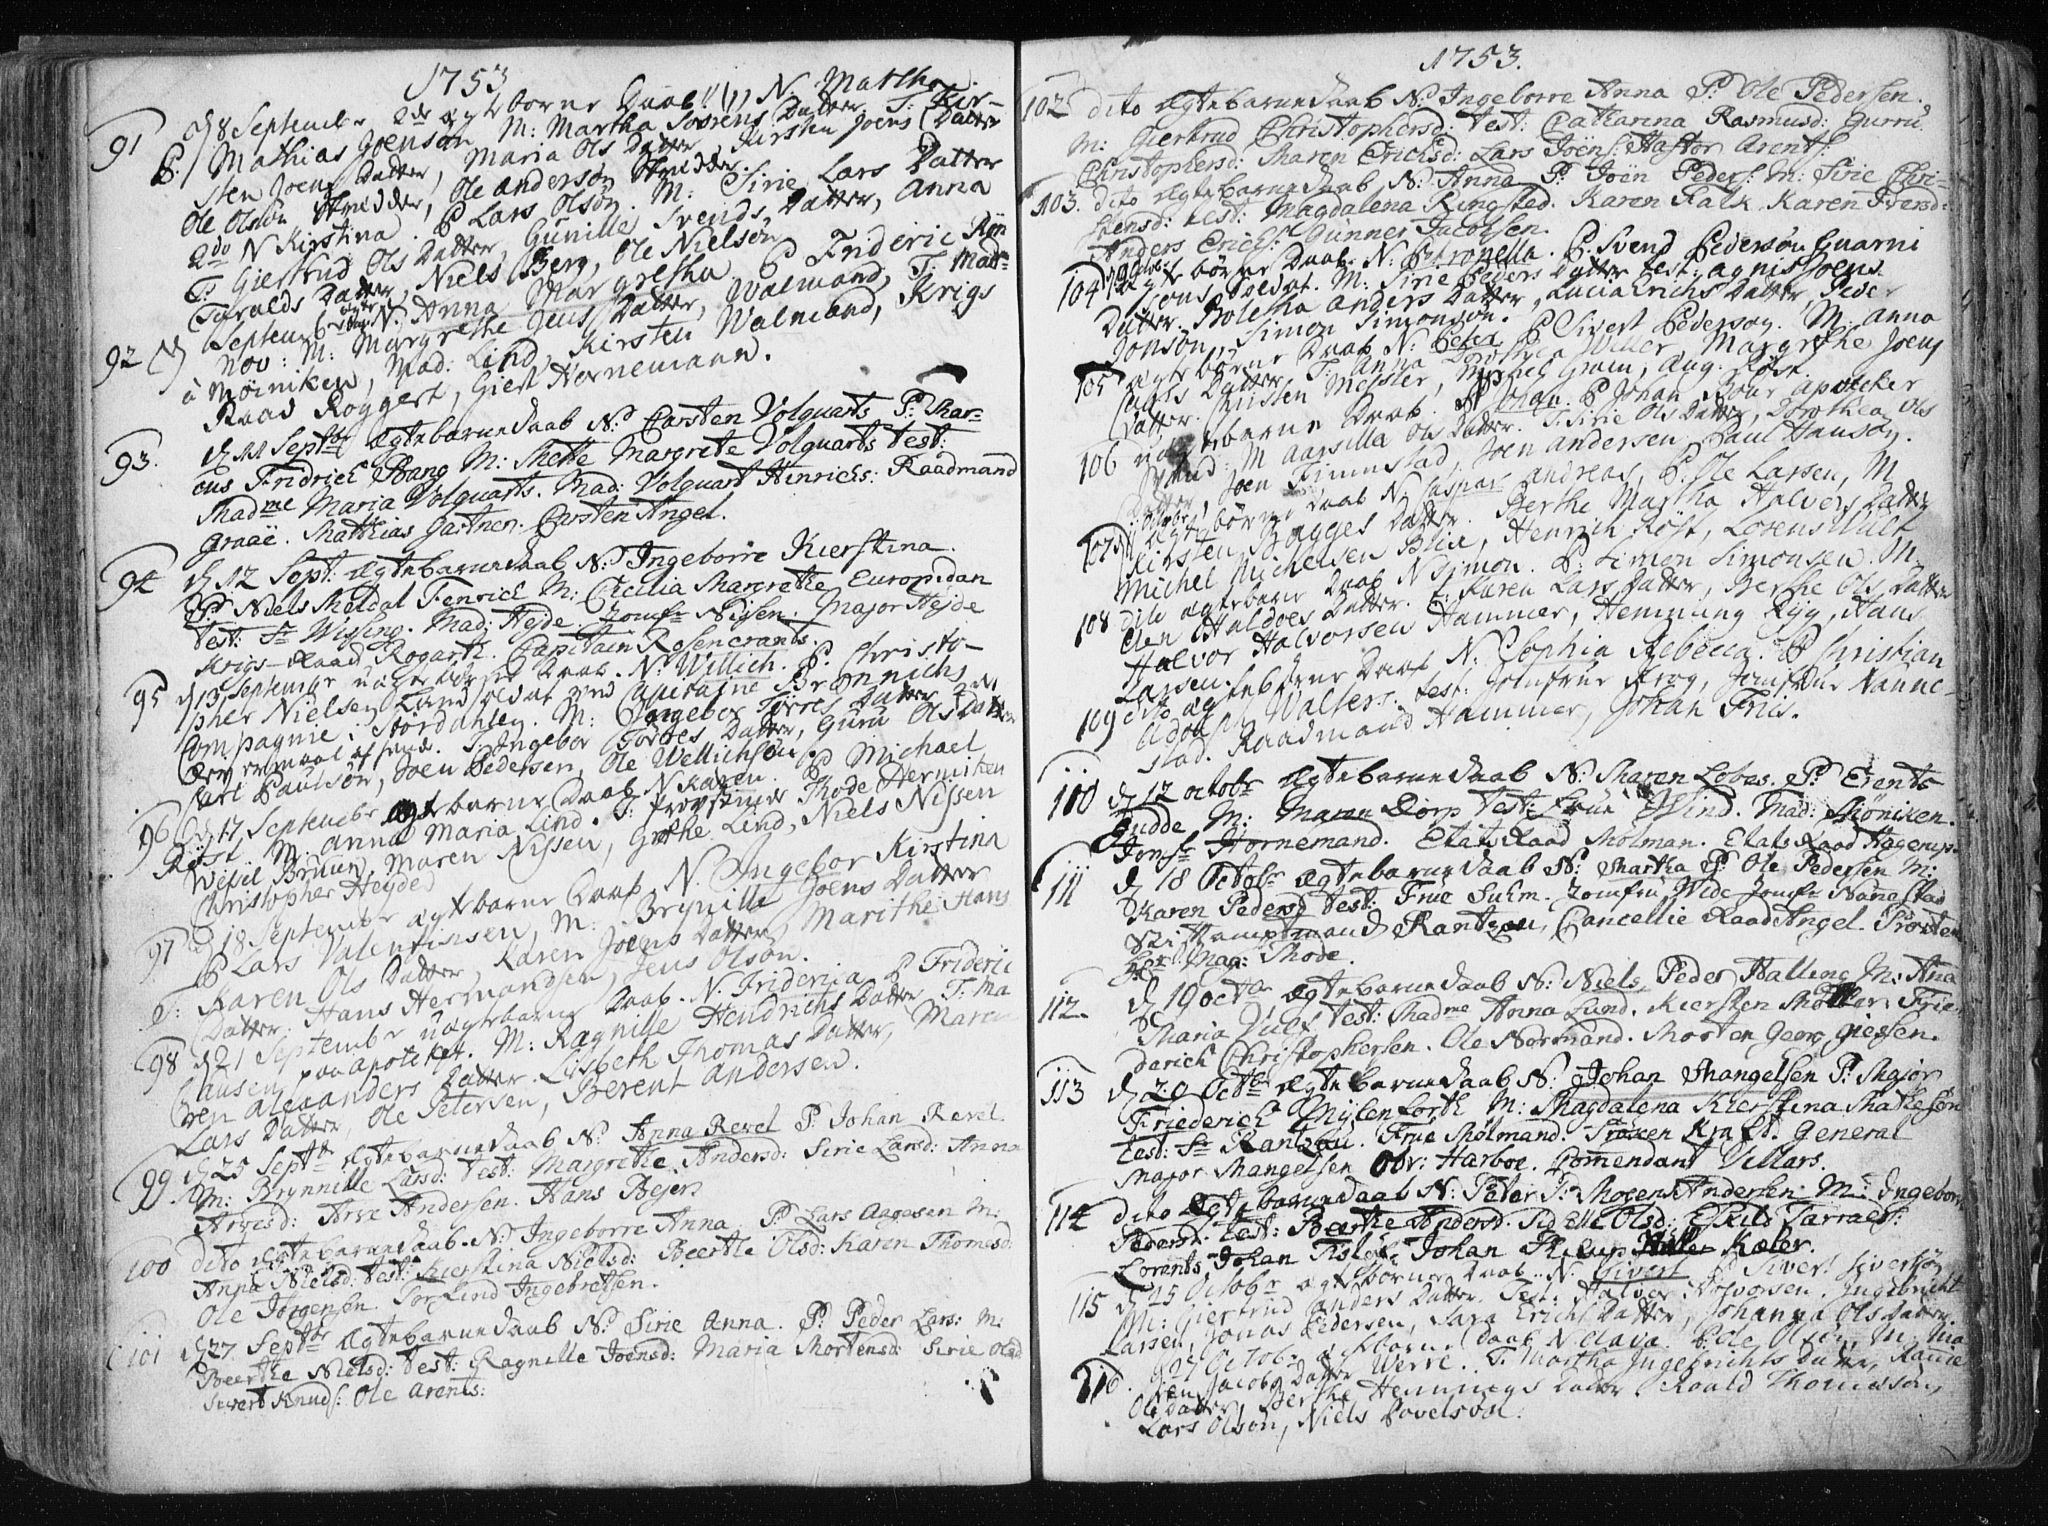 1753
91 d 8 Septembr 2de ægte børne Daab (1) N. Martha.
P. Mathias Joensøn M: Martha Sørens Datter T: Kir-
sten Joens Datter, Maria Ols Datter, Kirsten Joens Datter
Ole Olsøn Stredder, Ole Andersøn Stredder.
2do N Kirstina. P Lars Olsøn. M: Sirie Lars Datter
T: Giertrud Ols Datter, Gunille Svends Datter, Anna
Taralds Datter, Niels Berg, Ole Nielsøn
92 Septembr N. Anna Margretha P Frideric Røn
nov: M: Margrethe Jens Datter, Walmand, T: Mad
à Møiniken, Mad: Lind, Kirsten Walmand, Krigs
Raad Roggert, Giert Hornemann.
93. d 11 Septbr Ægtebarnedaab N: Carsten Volquarts P: Mar-
cus Fridrich Bang M: Mette Margrete Volquarts test:
Madme Maria Volquarts. Mad: Volquart Henrichs: Raadmand
Graae. Matthias Gartner. Carsten Angel.
94 d 12 Sept: Ægtebarnedaab N: Ingeborre Kierstina.
P: Niels Meldal Fenrich M: Cicilia Margrethe Europidan
test: Fr Wissing. Mad: Hejde. Jomfr Nissen. Major Hejde
Krigs-Raad Rogart. Capitain Rosencrants.
95 d 13 Septembr uægte børne Daab. N. Willich. P. Christo-
pher Nielsen Land Soldat ved Capitaine Brønnichs
Compagnie i Størdahlen. M: Ingebor Torres Datter
T: Ingebor Torres Datter, Guru Ols Datter
Carl Paulsøn, Joen Pedersen, Ole Wellichsøn
96 d 17 Septembr ægte barne Daab N Karen. P Michael
Røst M: Anna Maria Lind T: Provstinde Thode Hermiken
Wesel Bruun, Maren Nissen, Grethe Lind, Niels Nissen
Christopher Heyde
97 d 18 Septembr ægte barne Daab N. Ingebor Kirstina
P Lars Valentinsen, M: Brynille Joens Datter
T: Karen Ols Datter, Karen Joens Datter, Marithe Hans
Datter. Hans Hermandsen, Jens Olsøn.
98 d 21 Septembr uægte barne Daab. N. Friderica P Frideric
Clausen paa Apoteket. M: Ragnille Hendrichs Datter T: Ma
ren Alexanders Datter. Lisbeth Thomas Datter, Maren
Lars Datter, Ole Petersen, Berent Andersen.
99 d 25 Septbr Ægtebarnedaab N: Anna Revel P: Johan Revel
M: Brynnille Larsd: test: Margrethe Andersd: Sirie Larsd: Anna
Arvesd: Arve Andersen. Hans Bejer
100 dito ægtebarnedaab. N: Ingeborre Anna P: Lars Aagesen M:
Anna Nielsd: test: Kierstina Nielsd: Beerthe Olsd: Karen Thomesd:
Ole Jørgensøn. Torlind Ingebretsen.
101 d 27 Septbr Ægtebarnedaab N: Sirie Anna. P: Peder Lars: M:
Beerthe Nielsd: test: Ragnille Joensd: Maria Mortensd: Sirie Olsd
Sivert Knuds: Ole Arents:
1753.
102 dito Ægtebarnedaab N: Ingeborre Anna P: Ole Pedersen.
M: Giertrud Christophersd: test: Catharina Rasmusd: Gurru
Christophersd: Maren Erichsd: Lars Joens: Hastor Arents:
103. dito Ægtebarnedaab N: Anna P: Joen Peders: M: Sirie Chri-
stensd: test: Magdalena Ringsted. Karen Falk Karen Frends:
Anders Erichs: Gunner Jacobsen.
104 ægte børne Daab. N: Petronella. P. Svend Pedersøn Guarni
sons Soldat. M: Sirie Peders Datter test: Agnis Joens
Datter. Boletha Anders Datter, Lucia Erichs Datter, Peder
Jonsøn, Simon Simonsøn.
105 ægte barne Daab N: Peter P Sivert Pedersøn. M: Anna
Lars Datter. T: Anna Dorothea Weller, Margrethe Joens
Datter. Christen Meisler, Michel Gram, Aug. Røst.
106 uægte barne Daab. N Johan. P Johan Bour apoteker
Svend: M Aarsilla Ols Datter. T: Sirie Ols Datter, Dorothea Ols
Datter, Joen Fimmstad, Joen Andersen Paul Hansøn.
107 ægte børne Daab N Caspar Andreas, P. Ole Larsen, M
Kirsten Bagges Datter. Berthe Martha Halvers Datter
Michel Michelsen Blix, Henrich Røst, Lorens Wulf
108 dito ægtebarne Daab N Simon. P. Simon Simonsen. M.
Elen Haldoes Datter. T. Karen Lars Datter, Berthe Ols Datter
Halvor Halvorsen Hammer, Hemming Ryg, Hans
Larsen.
109 dito ægtebørne Daab N. Sophia Rebecca. P Christian
Adolph Walters. test: Jomfrue Krog, Jomfrue Nanne-
stad. Raadmand Hammer, Johan Friis.
110 d 12 octobr Ægtebarnedaab N: Maren Lobes. P: Erent
Budde M: Maren Dorp test: Frue Wind. Mad: Møniken.
Jomfr Hornemand. EtatsRaad Molman. EtatsRaad Hagerup.
111 d 18 Octobr Ægtebarnedaab N: Martha P: Ole Pedersen M:
Karen Pedersd test: Frue Suhm. Jomfru Wide Jomfr Nannestad
Hauptmand Rantzou, Cancellie Raad Angel.
Hr: Mag: Thode.
112. d 19 octbr Ægtebarnedaab N: Niels, Peder Halling M: Ana
Maria Vulf test: Madme Anna Lund. Kiersten Møller. Frie-
derich Christophersen. Ole Normand. Morten Georg Giessen.
113 d 20 Octbr Ægtebarnedaab N: Johan Mangelsen P: Major
Friederich Mylenforth M: Magdalena Kierstina Mathesøn
test: Fr Rantzou. Frue Molmand. Frøken Kraft. General
Major Mangelsen Obr: Harboe. Comendant Villars.
114 dito Ægtebarnedaab N: Peter P: Mogens Andersen M: Ingeborre
Pedersd. test: Beerthe Andersd. Sidselle Olsd: Eskild Tarraels:
Lorents Johan Fisler Johan Philip Køler.
115 d 25 Octobr ægte børne Daab. N. Sivert P Sivert Sivertsøn
M: Giertrud Anders Datter. Test: Halvor Halvorsen. Ingebricht
Larsen, Jonas Pedersen, Sara Erichs Datter, Johanna Ols Datter.
116. d 27 Octobr ægte barne Daab N Clara. P Ole Olsen, M: Ma
ren Jacobs Datter Werre. T: Martha Ingebrichts Datter, Ranie
Ols Datter, Berthe Hemmings Datter, Roald Thomesøn,
Lars Olsøn, Niels Povelsøn.